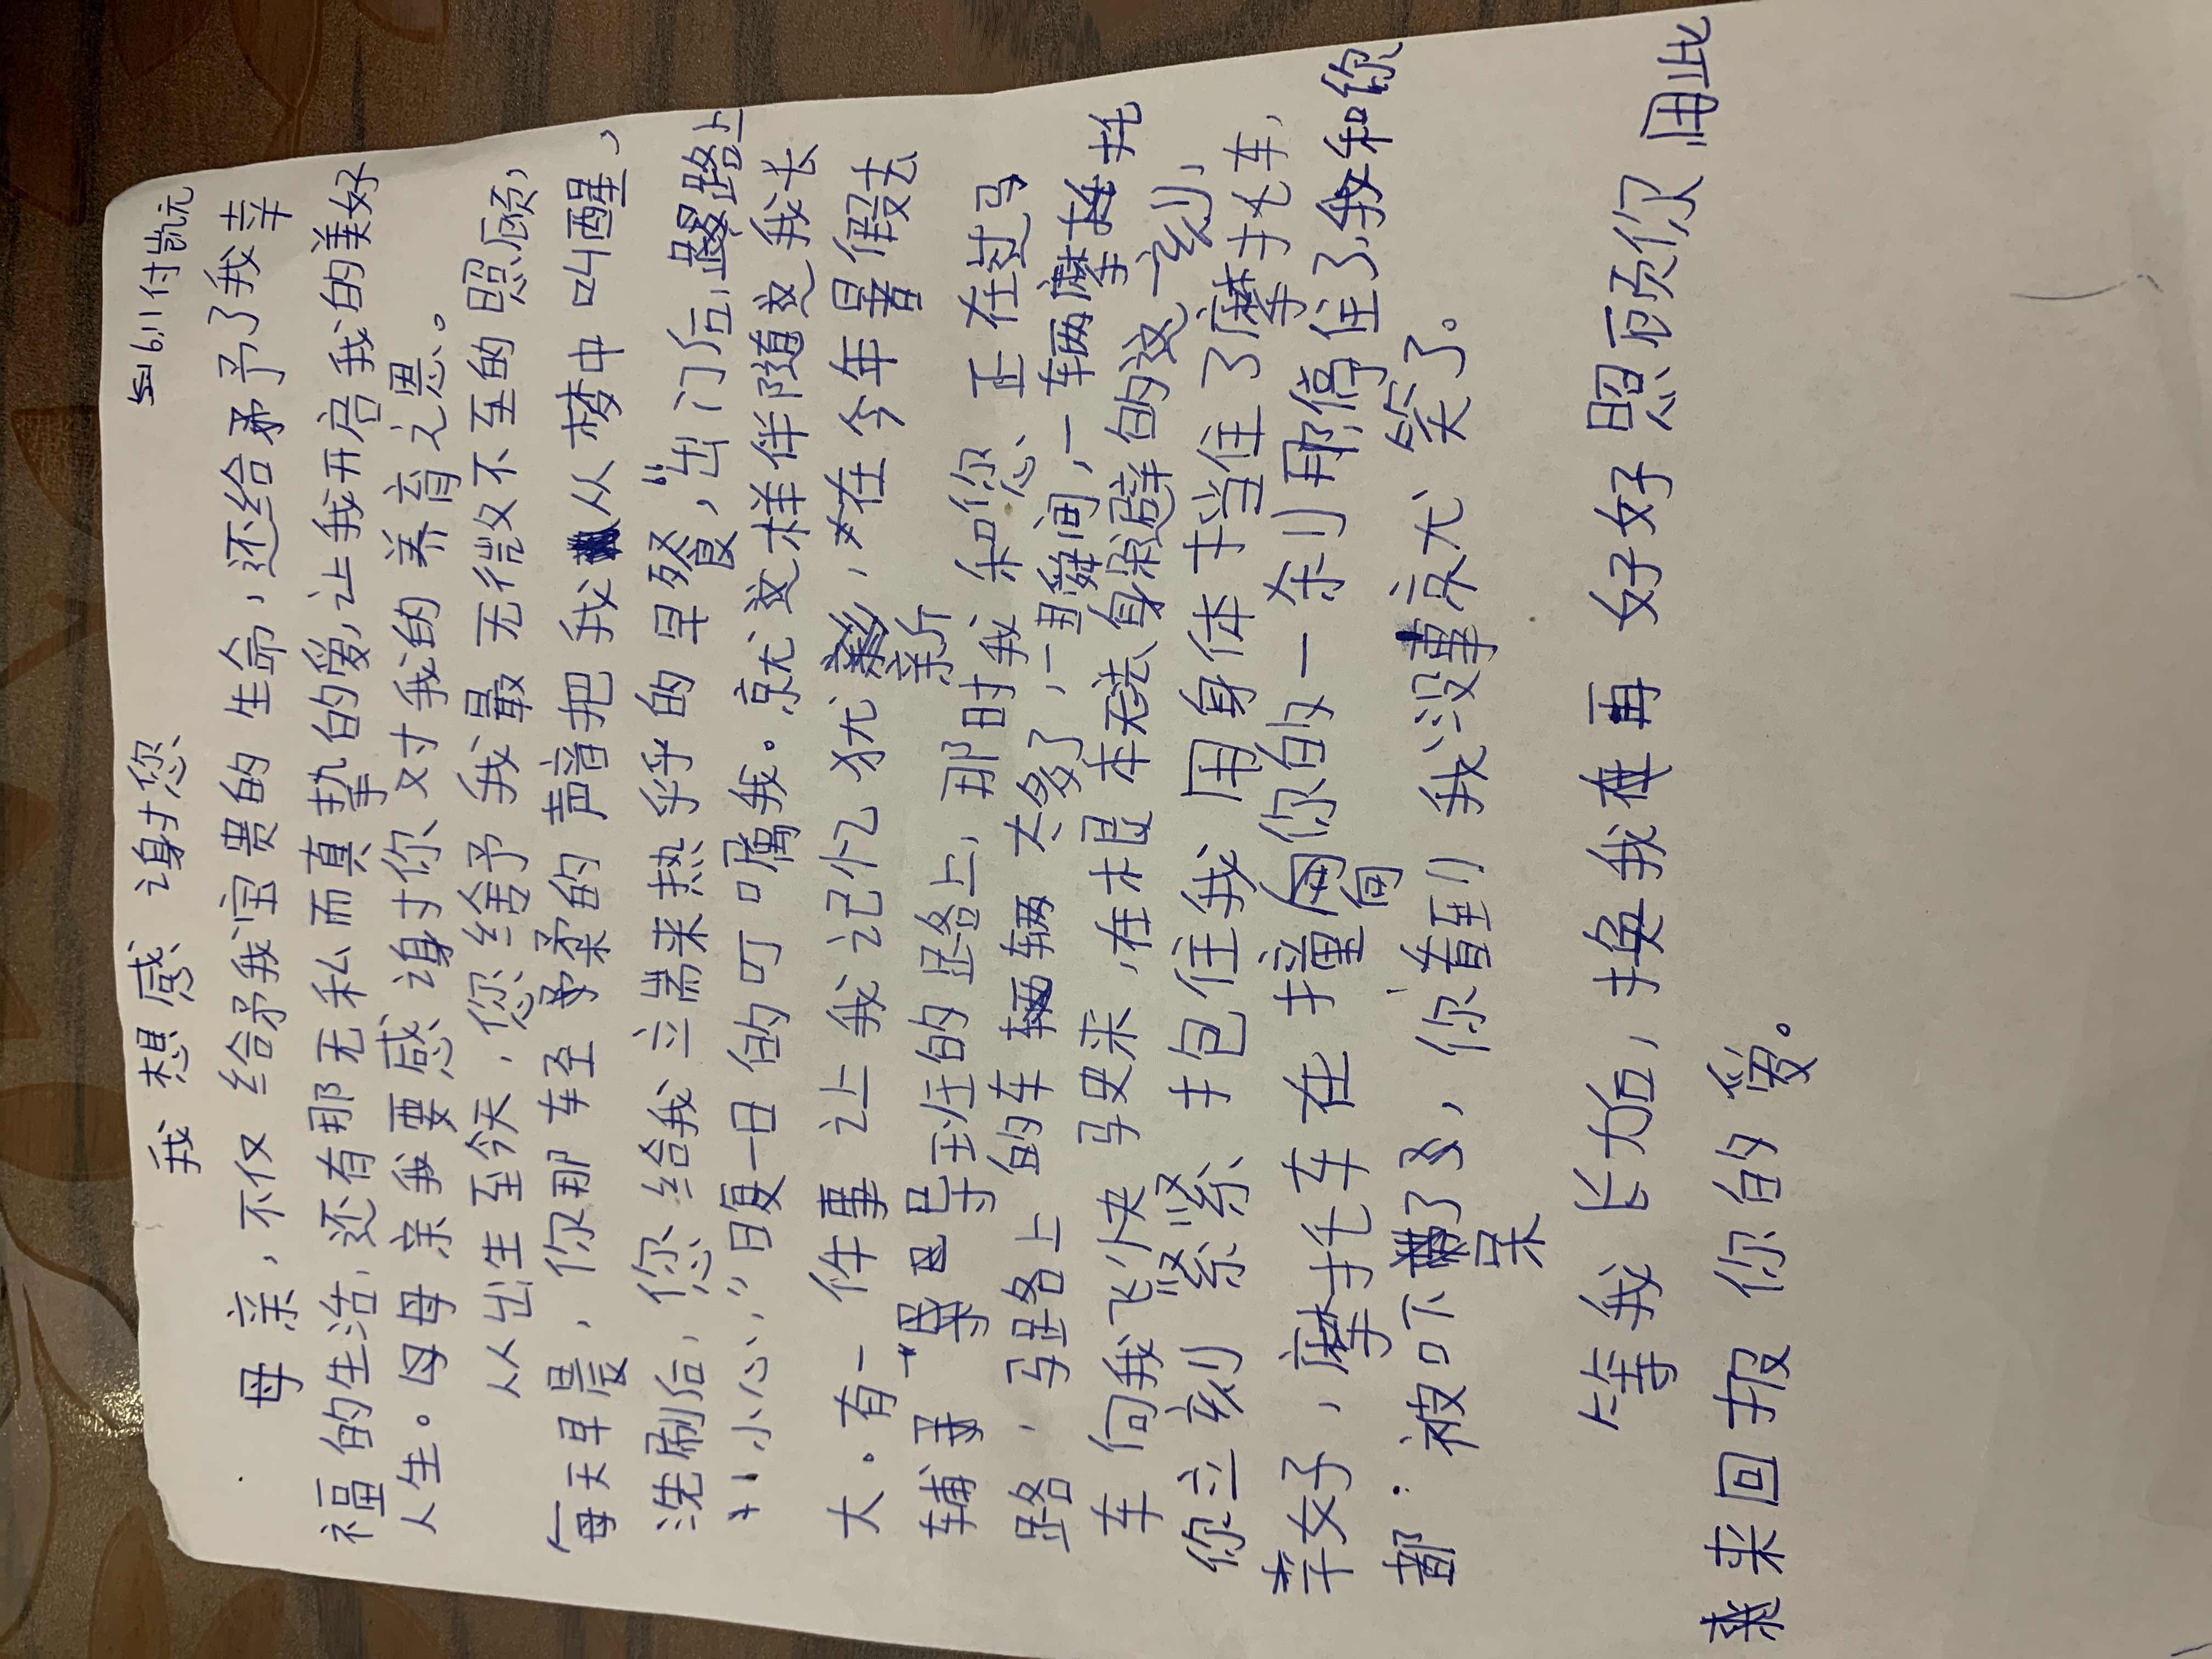 我想感谢您 到6.11付凯元
母亲，不仅给予我宝贵的生命，还给予了我幸
福的生活，还有那无私而真挚的爱，让我开启我的美好
人生。母亲我要感谢你对我的养育之恩。
从出生至今天，您给予我最无微不至的照顾，
每天早晨，你那轻柔的声音把我从梦中叫醒，
洗刷后，您给我立端来热乎的早餐，“出门后，路上
小心，”日复一日的叮嘱我。就这样伴随这我长
大。有一件事让我记忆犹新，在今年暑假去
辅导班的路上，那时我和您、正在过马
路，马路上的车辆太多了，一眼瞬间，一辆摩托
车向我飞快马史来，在根本无法身躲避的这一刻，
你立刻紧紧抱住我用身体挡住了摩托车，
幸好，摩托车在撞向你的一刹那停住了，我和你
都被吓呆了，你看到我没事就笑了。
等我长大后，换我再好好照顾你用此
来回报你的爱。